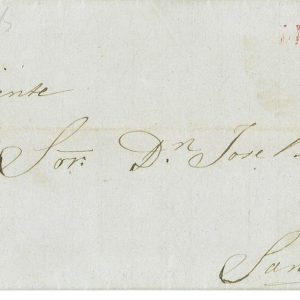 ente
Sor. Dn. Jose
San